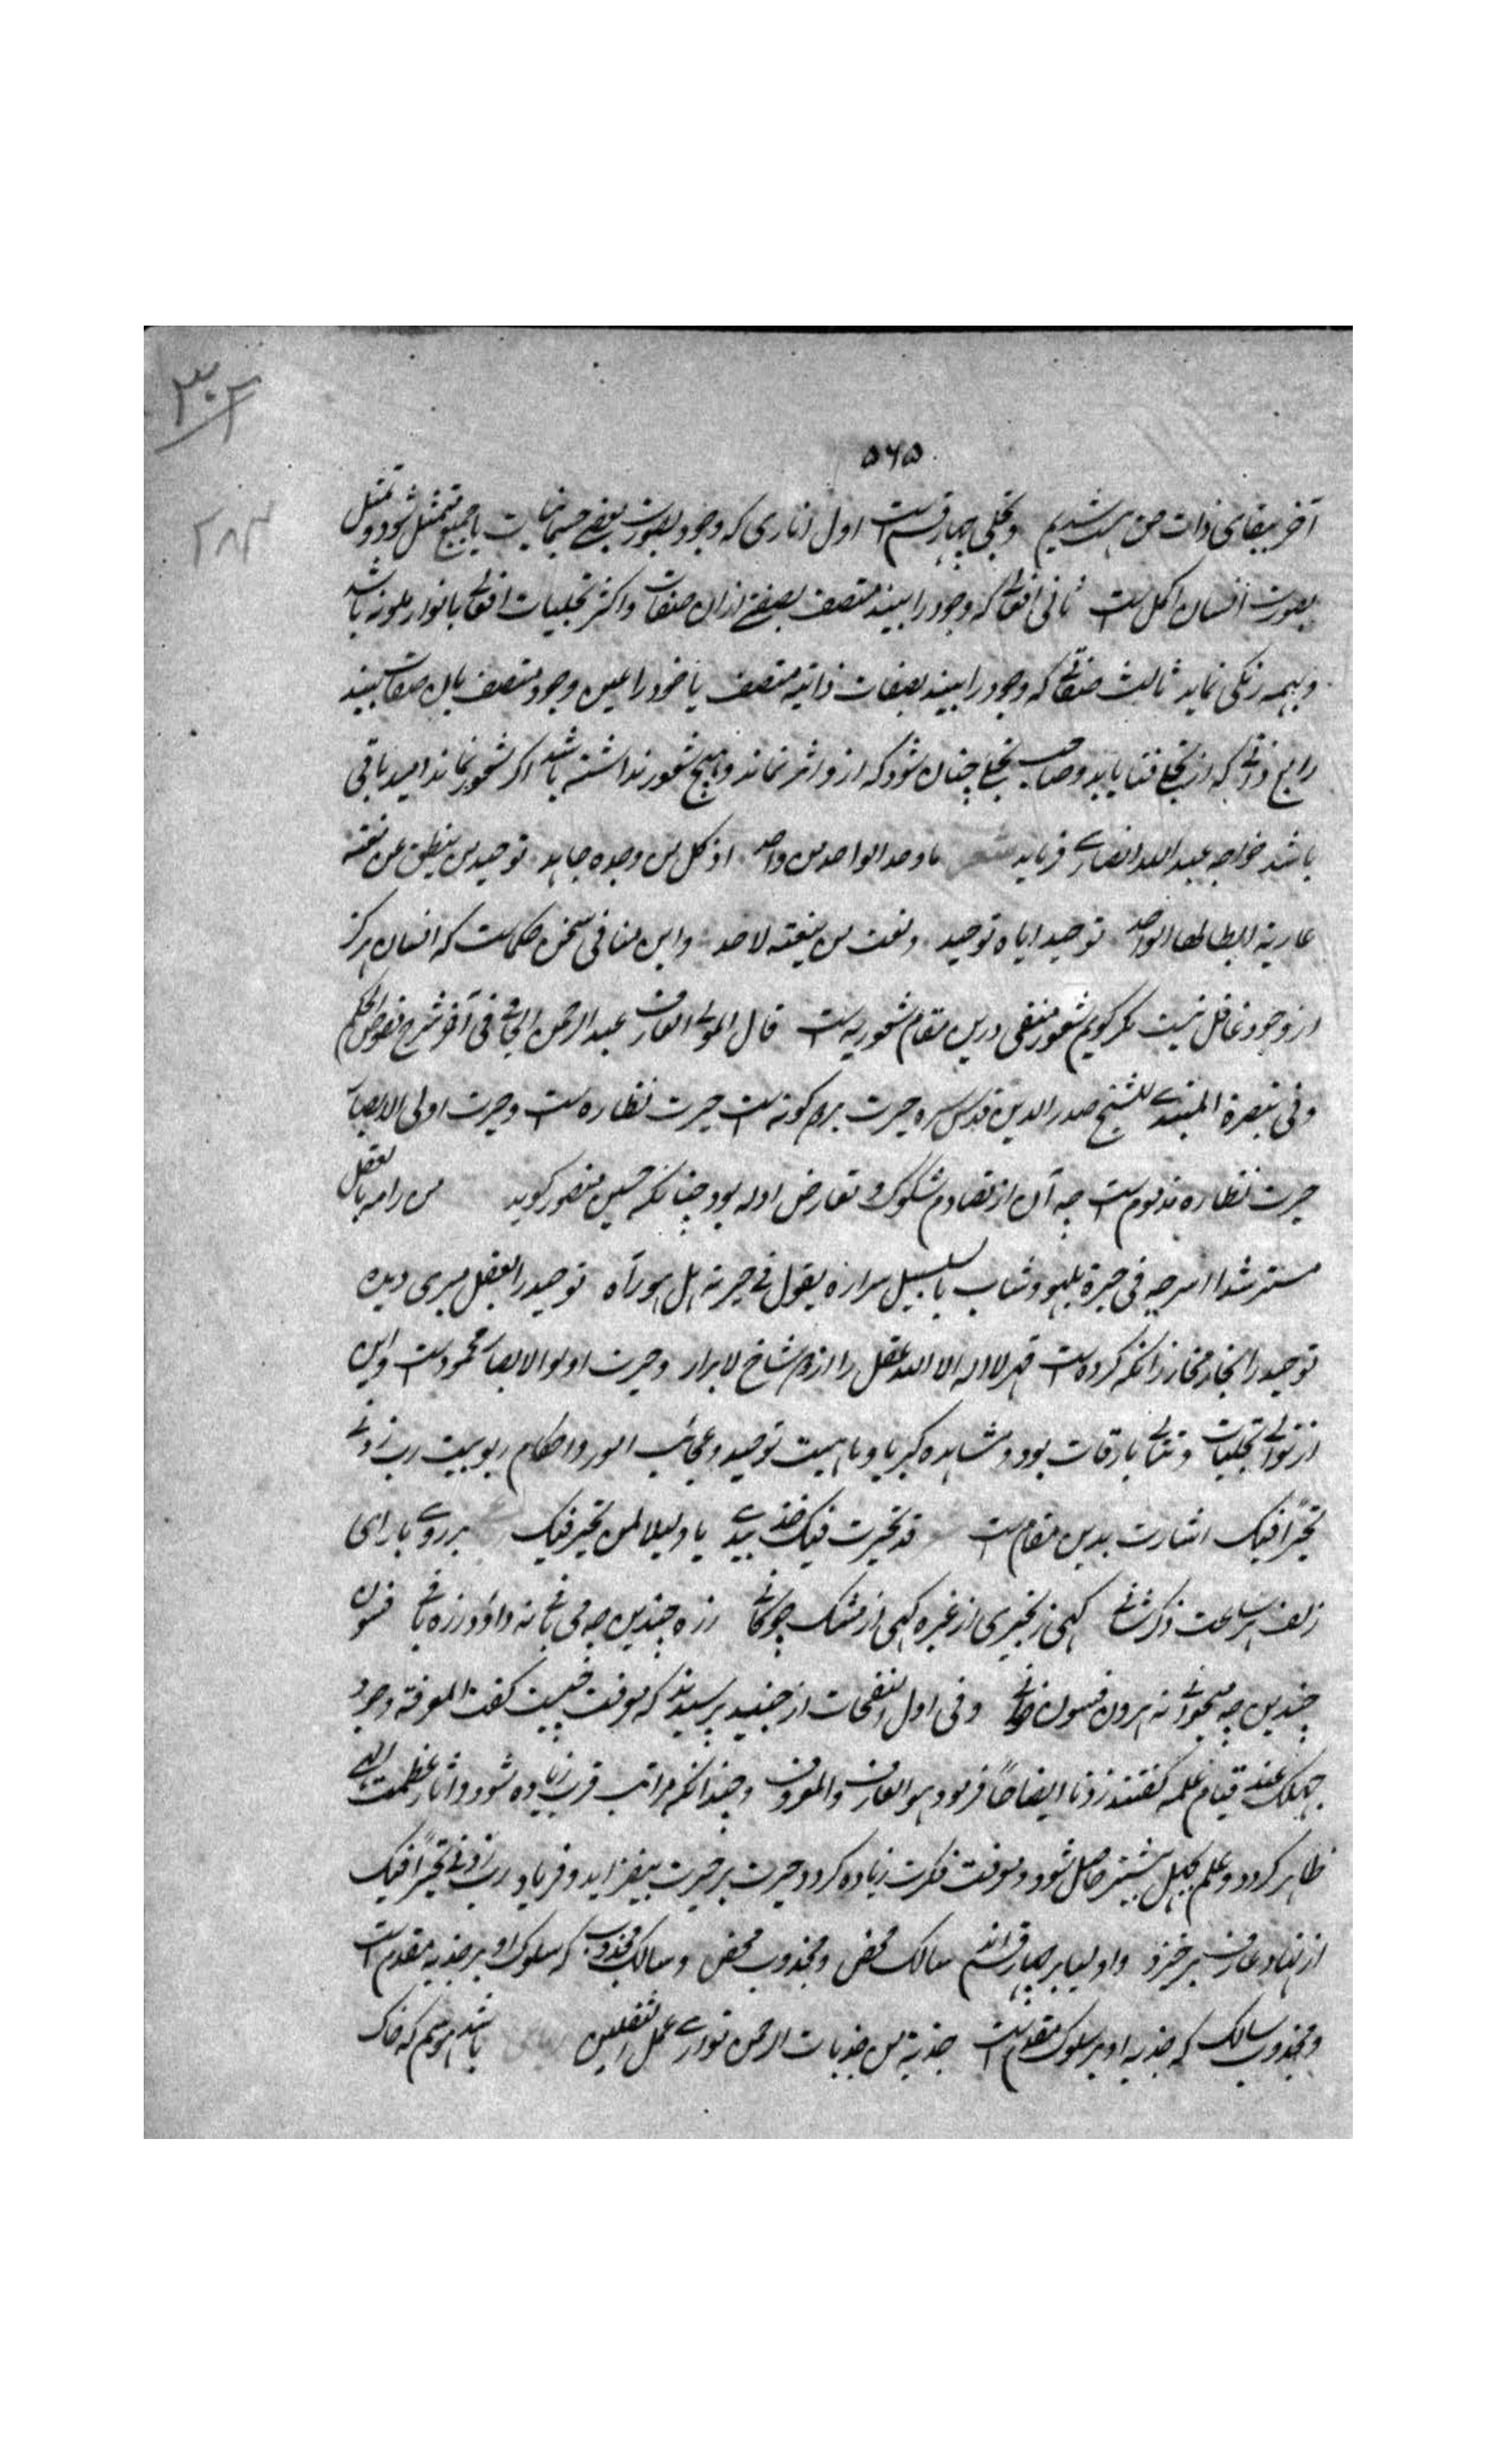 ۳۰۲
۵۶۵
۲۸۳
آخر ببقای ذات حق هست شدیم و تجلی چهار قسم است اول اثاری که وجود بصورت بعضی جسمانیات یا جمیع متمثل شود و تمثل
بصورت انسان اکمل است ثانی افعالی که وجود را بیند متصف بصفتی ازان صفات و اکثر تجلیات افعالی بانوار ملونه باشد
و بهمه رنگی نماید ثالث صفاتی که وجود را بیند بصفات ذاتیه متصف یا خود را عین وجود متصف بان صفات بیند
رابع ذاتی که از تجلی فنا یابد و صاحب تجلی چنان شود که ازو اثر نماند و هیچ شعور نداشته باشد اگر شعور نماند امید باقی
باشد خواجه عبد الله انصاری فرماید شعر ما وحد الواحد من واحد اذ کل من وحده جاحد توحید من ینطق عن نعته
عاریة ابطالها الواحد توحیده ایاه توحیده و نعت من ینعته لاحد و این منافی سخن حکماست که انسان هرگز
از وجود غافل نیست مگر گویم شعور منفی درین مقام شعور به است قال المولی العارف عبد الرحمن الجامی فی آخر شرح نصوص الحکم
و فی تبصرة المبتدی للشیخ صدر الدین قدس سره حیرت بر دو گونه است حیرت نظاره است و حیرت اولی الابصار
حیرت نظاره مذموم است چه آن از تصادم شکوک و تعارض ادله بود چنانکه حسین منصور گوید من رامه بالعقل
مسترشدا اسرحه فی حیرة یلهو و شاب بالتلبیس اسراره یقول فی حیرته هل هو توحید را بعقل مبری دیده
توحید را بخار مخار زانکه کرده است قهر لا اله الا الله عقل را از دو شاخ لا بردار و حیرت اولوا الابصار محمود است و این
از توالی تجلیات و تتالی بارقات بود و مشاهده کبریا و ماهیت توحید و عجائب امور و احکام ربوبیت رب زدنی
تحیرا فیک اشارت بدین مقام است قد تحیرت فیک خذ بیدی یا دلیلا لمن تحیر فیک بر روی یار ای
زلف هر ساعت دگرشانی گهی زنجیری از عنبر گهی از مشک چوگانی زره چندین چه می بافی نه داود زره بافی فسون
چندین چه میخوانی نه هرون فسون خوانی و فی اول النفحات از جنید پرسیدند که معرفت چیست گفت المعرفة وجود
جهلک عند قیام علمه گفتند زدنا ایضاحا فرمود هو العارف و المعروف و چندانکه مراتب قرب زیاده شود و اثار عظمت الهی
ظاهر گردد و علم بجهل بیشتر حاصل شود و معرفت نکرت زیاده گردد حیرت بر حیرت بیفزاید و فریاد رب زدنی تحیرا فیک
از نهاد عارف برخیزد و اولیا بر چهار قسم اند سالک محض و مجذوب محض و سالک مجذوب که سلوک او بر جذبه مقدم است
و مجذوب سالک که جذبه او بر سلوک مقدم است جذبة من جذبات الرحمن توازی عمل الثقلین رباعی باشد برسم که خاک